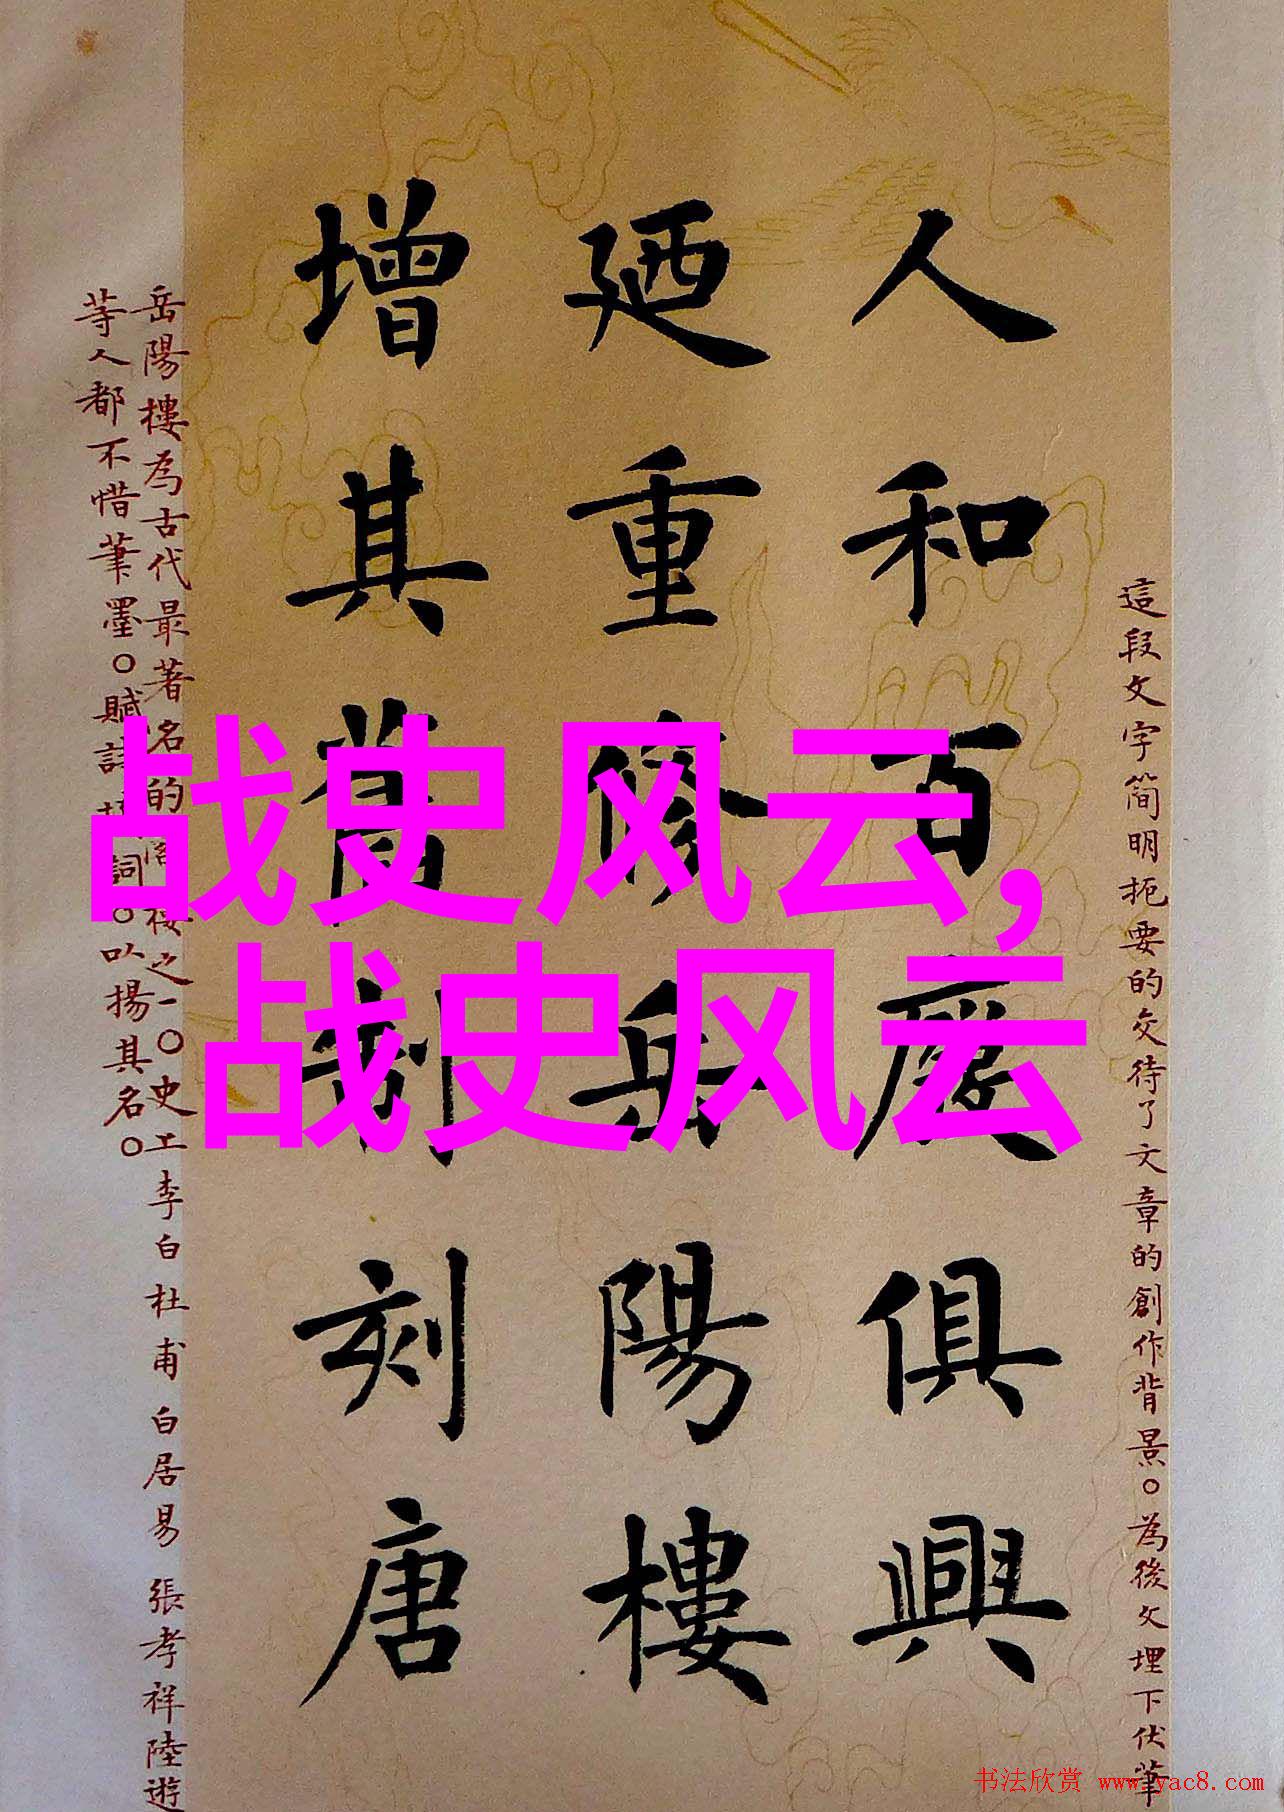 這段文字简明扼要的交待了文章的創作背景。為後文埋下伏筆
人和百廢俱興
廼重修岳陽樓
增其舊制刻唐
岳陽樓為古代最著名的樓之一。史上李白杜甫白居易張孝祥陸遊
等人都不惜筆墨。賦詩詞。以揚其名。
战史风云,
战史风云
书法欣赏 www.yac8.com